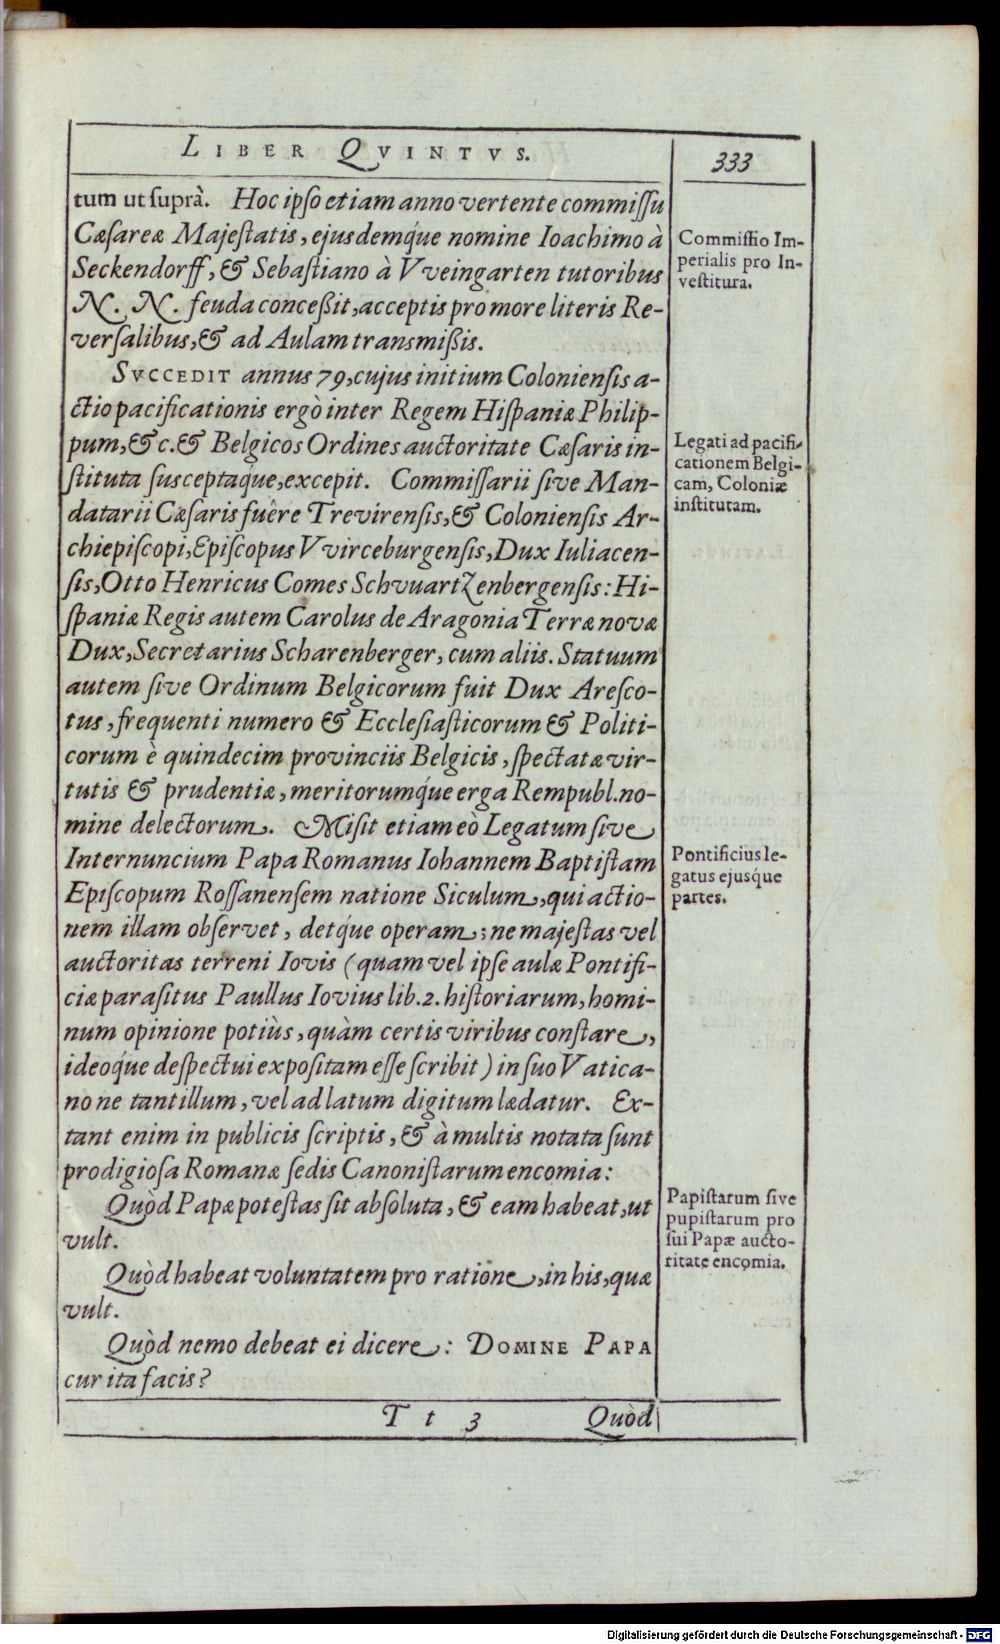 LIBER QVINTVS.
333
tum ut suprà. Hoc ipso etiam anno vertente commissu
Cæsareæ Majestatis, ejusdemq́ue nomine Ioachimo à
Seckendorff, & Sebastiano à VVeingarten tutoribus
N. N. feuda conceßit, acceptis pro more literis Re-
versalibus, & ad Aulam transmißis.
Commissio Im-
perialis pro In-
vestitura.
SVCCEDIT annus 79, cujus initium Coloniensis a-
ctio pacificationis ergò inter Regem Hispaniæ Philip-
pum, &c. & Belgicos Ordines auctoritate Cæsaris in-
stituta susceptaq́ue, excepit. Commissarii sive Man-
datarii Cæsaris fuêre Trevirensis, & Coloniensis Ar-
chiepiscopi, Episcopus VVirceburgensis, Dux Iuliacen-
sis, Otto Henricus Comes Schvuartzenbergensis: Hi-
spaniæ Regis autem Carolus de Aragonia Terræ novæ
Dux, Secretarius Scharenberger, cum aliis. Statuum
autem sive Ordinum Belgicorum fuit Dux Aresco-
tus, frequenti numero & Ecclesiasticorum & Politi-
corum è quindecim provinciis Belgicis, spectatæ vir-
tutis & prudentiæ, meritorumq́ue erga Rempubl. no-
mine delectorum. Misit etiam eò Legatum sive
Internuncium Papa Romanus Iohannem Baptistam
Episcopum Rossanensem natione Siculum, qui actio-
nem illam observet, detq́ue operam; ne majestas vel
auctoritas terreni Iovis (quam vel ipse aulæ Pontifi-
ciæ parasitus Paullus Iovius lib. 2. historiarum, homi-
num opinione potiùs, quàm certis viribus constare,
ideoq́ue despectui expositam esse scribit) in suo Vatica-
no ne tantillum, vel ad latum digitum lædatur. Ex-
tant enim in publicis scriptis, & à multis notata sunt
prodigiosa Romanæ sedis Canonistarum encomia:
Legati ad pacifi-
cationem Belgi-
cam, Coloniæ
institutam.
Pontificius le-
gatus ejusque
partes.
Quòd Papæ potestas sit absoluta, & eam habeat, ut
vult.
Quòd habeat voluntatem pro ratione, in his, quæ
vult.
Quòd nemo debeat ei dicere: DOMINE PAPA
cur ita facis?
Papistarum sive
pupistarum pro
sui Papæ aucto-
ritate encomia.
Tt 3
Quòd
Digitalisierung gefördert durch die Deutsche Forschungsgemeinschaft - DFG